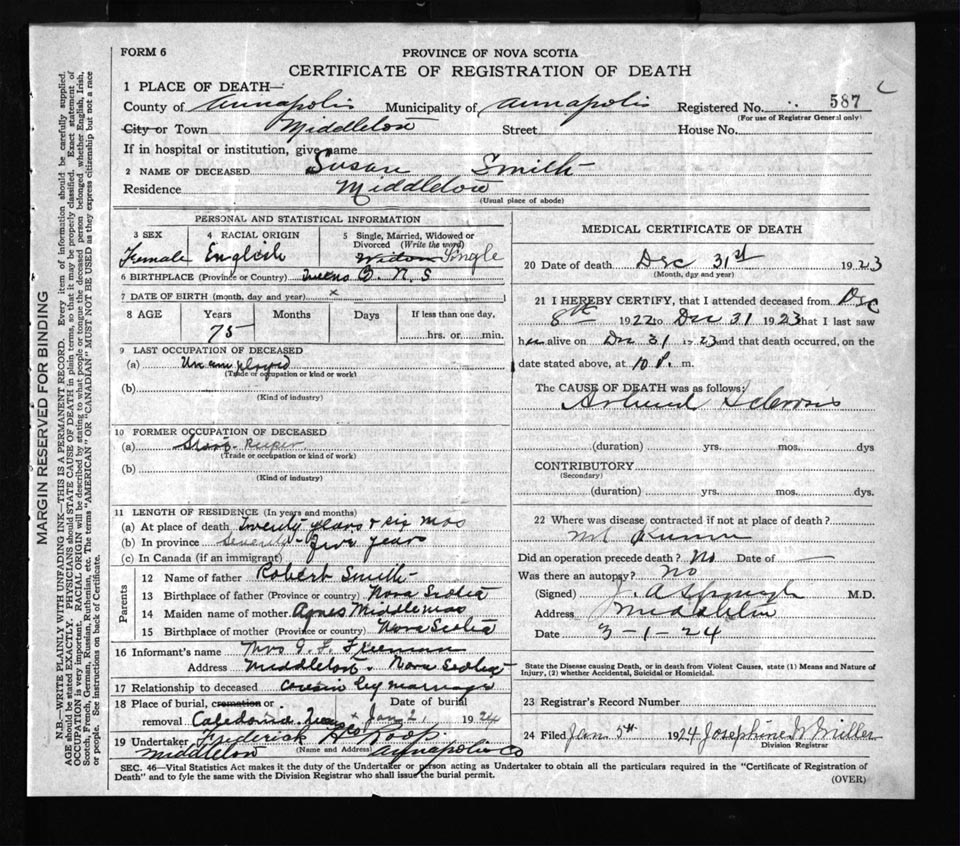 FORM 6
PROVINCE OF NOVA SCOTIA
CERTIFICATE OF REGISTRATION OF DEATH
1 PLACE OF DEATH—
County of Annapolis Municipality of Annapolis Registered No. 587
(For use of Registrar General only)
City or Town Middleton Street House No.
If in hospital or institution, give name
2 NAME OF DECEASED Susan Smith
Residence Middleton
(Usual place of abode)
PERSONAL AND STATISTICAL INFORMATION
3 SEX 4 RACIAL ORIGIN 5 Single, Married, Widowed or Divorced (Write the word)
Female English Widow Single
6 BIRTHPLACE (Province or Country) Queens Co. N. S
7 DATE OF BIRTH (month, day and year) x
8 AGE Years Months Days If less than one day,
75 hrs. or min.
9 LAST OCCUPATION OF DECEASED
(a) Unemployed
(Trade or occupation or kind or work)
(b)
(Kind of industry)
10 FORMER OCCUPATION OF DECEASED
(a) Keeper
(Trade or occupation or kind of work)
(b)
(Kind of industry)
11 LENGTH OF RESIDENCE (In years and months)
(a) At place of death twenty years & six mos
(b) In province seventy-five years
(c) In Canada (if an immigrant)
Parents
12 Name of father Robert Smith
13 Birthplace of father (Province or country) Nova Scotia
14 Maiden name of mother Agnes Middlemas
15 Birthplace of mother (Province or country) Nova Scotia
16 Informant's name Mrs Freeman
Address Middleton. Nova Scotia
17 Relationship to deceased cousin by marriage
18 Place of burial, cremation or removal Caledonia. Queens Co Date of burial Jan 2, 1924
19 Undertaker Frederick Roop
(Name and Address)
Middleton Annapolis Co
MEDICAL CERTIFICATE OF DEATH
20 Date of death Dec 31st 1923
(Month, day and year)
21 I HEREBY CERTIFY, that I attended deceased from Dec
8th 1922 to Dec 31 1923 that I last saw
her alive on Dec 31 1923 and that death occurred, on the
date stated above, at 10 P. m.
The CAUSE OF DEATH was as follows:
Sclerosis
(duration) yrs. mos. dys
CONTRIBUTORY
(Secondary)
(duration) yrs. mos. dys.
22 Where was disease contracted if not at place of death?
Did an operation precede death? No Date of —
Was there an autopsy? No
(Signed) J. A. M.D.
Address Middleton
Date 3-1-24
State the Disease causing Death, or in death from Violent Causes, state (1) Means and Nature of
Injury, (2) whether Accidental, Suicidal or Homicidal.
23 Registrar's Record Number
24 Filed Jan 5th 1924 Josephine Miller
Division Registrar
SEC. 46—Vital Statistics Act makes it the duty of the Undertaker or person acting as Undertaker to obtain all the particulars required in the "Certificate of Registration of
Death" and to fyle the same with the Division Registrar who shall issue the burial permit.
(OVER)
MARGIN RESERVED FOR BINDING
N.B.—WRITE PLAINLY WITH UNFADING INK—THIS IS A PERMANENT RECORD. Every item of information should be carefully supplied.
AGE should be stated EXACTLY. PHYSICIANS should STATE CAUSE OF DEATH in plain terms, so that it may be properly classified. Exact statement of
OCCUPATION is very important. RACIAL ORIGIN will be described by stating to what people or tongue the deceased person belonged whether English, Irish,
Scotch, French, German, Russian, Ruthenian, etc. The terms "AMERICAN" OR "CANADIAN" MUST NOT BE USED as they express citizenship but not a race
or people. See instructions on back of Certificate.